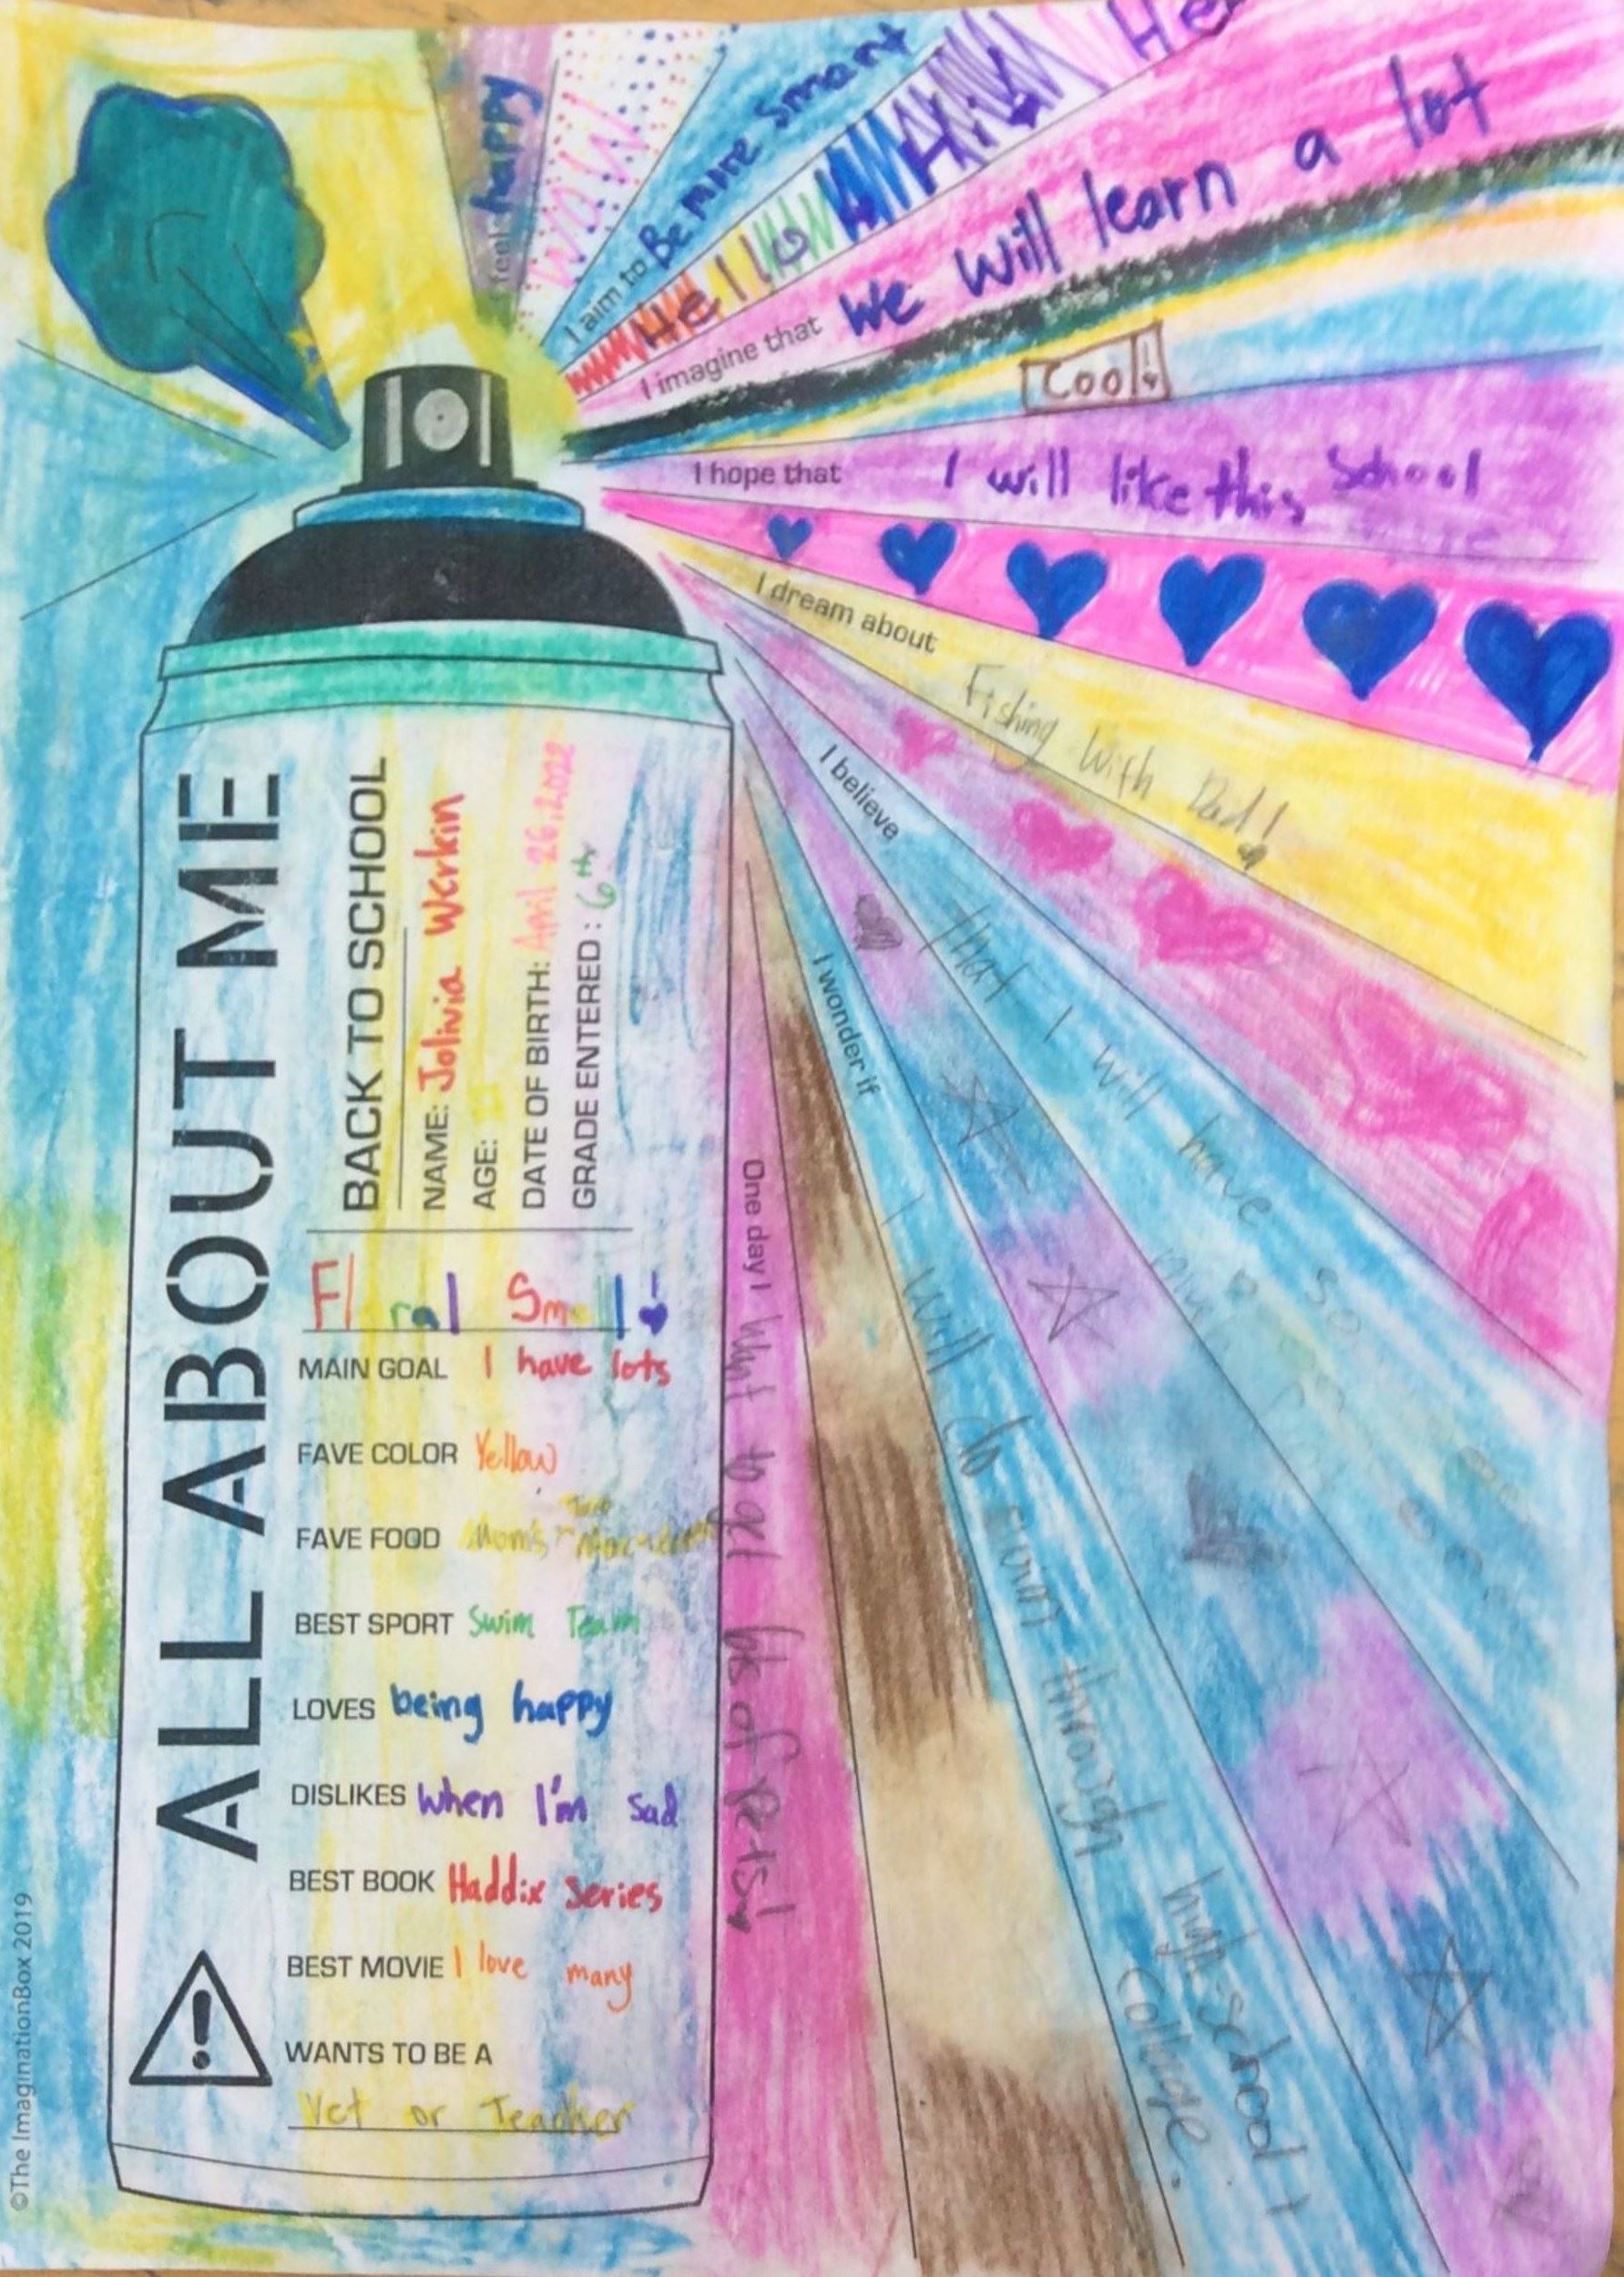 ALL ABOUT ME
BACK TO SCHOOL
NAME: Jolivia Werkin
AGE: 11
DATE OF BIRTH: April 26, 2022
GRADE ENTERED: 6th
Floral Smell!
MAIN GOAL I have lots
FAVE COLOR Yellow
FAVE FOOD Mom's
BEST SPORT Swim Team
LOVES being happy
DISLIKES when I'm sad
BEST BOOK Haddix Series
BEST MOVIE I love many
WANTS TO BE A
Vet or Teacher
I feel happy
WOW
I aim to Be more Smart
Hello
Hi
He
I imagine that We will learn a lot
Cool!
I hope that I will like this School
I dream about Fishing With Dad!
I believe that I will have so
I wonder if I will do swim through high-school /
college.
One day I want to get lots of pets!
©The ImaginationBox 2019